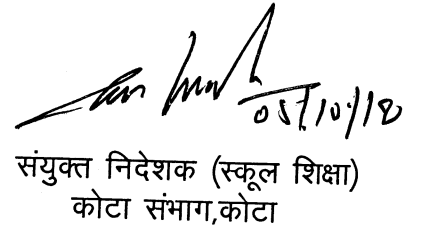 05/10/18
संयुक्त निदेशक (स्कूल शिक्षा)
कोटा संभाग,कोटा